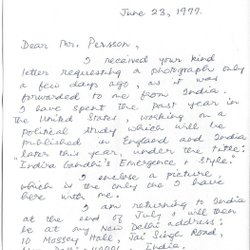 June 23, 1977.
Dear Mr. Persson,
I received your kind
letter requesting a photograph only
a few days ago, as it was
forwarded to me from India.
I have spent the past year in
the United States, working on a
political study which will be
published in England and India
later this year, under the title:
"Indira Gandhi's Emergence & Style."
I enclose a picture,
which is the only one I have
here with me.
I am returning to India
at the end of July & will then
be at my New Delhi address:
10 Massey Hall, Jai Singh Road,
India.